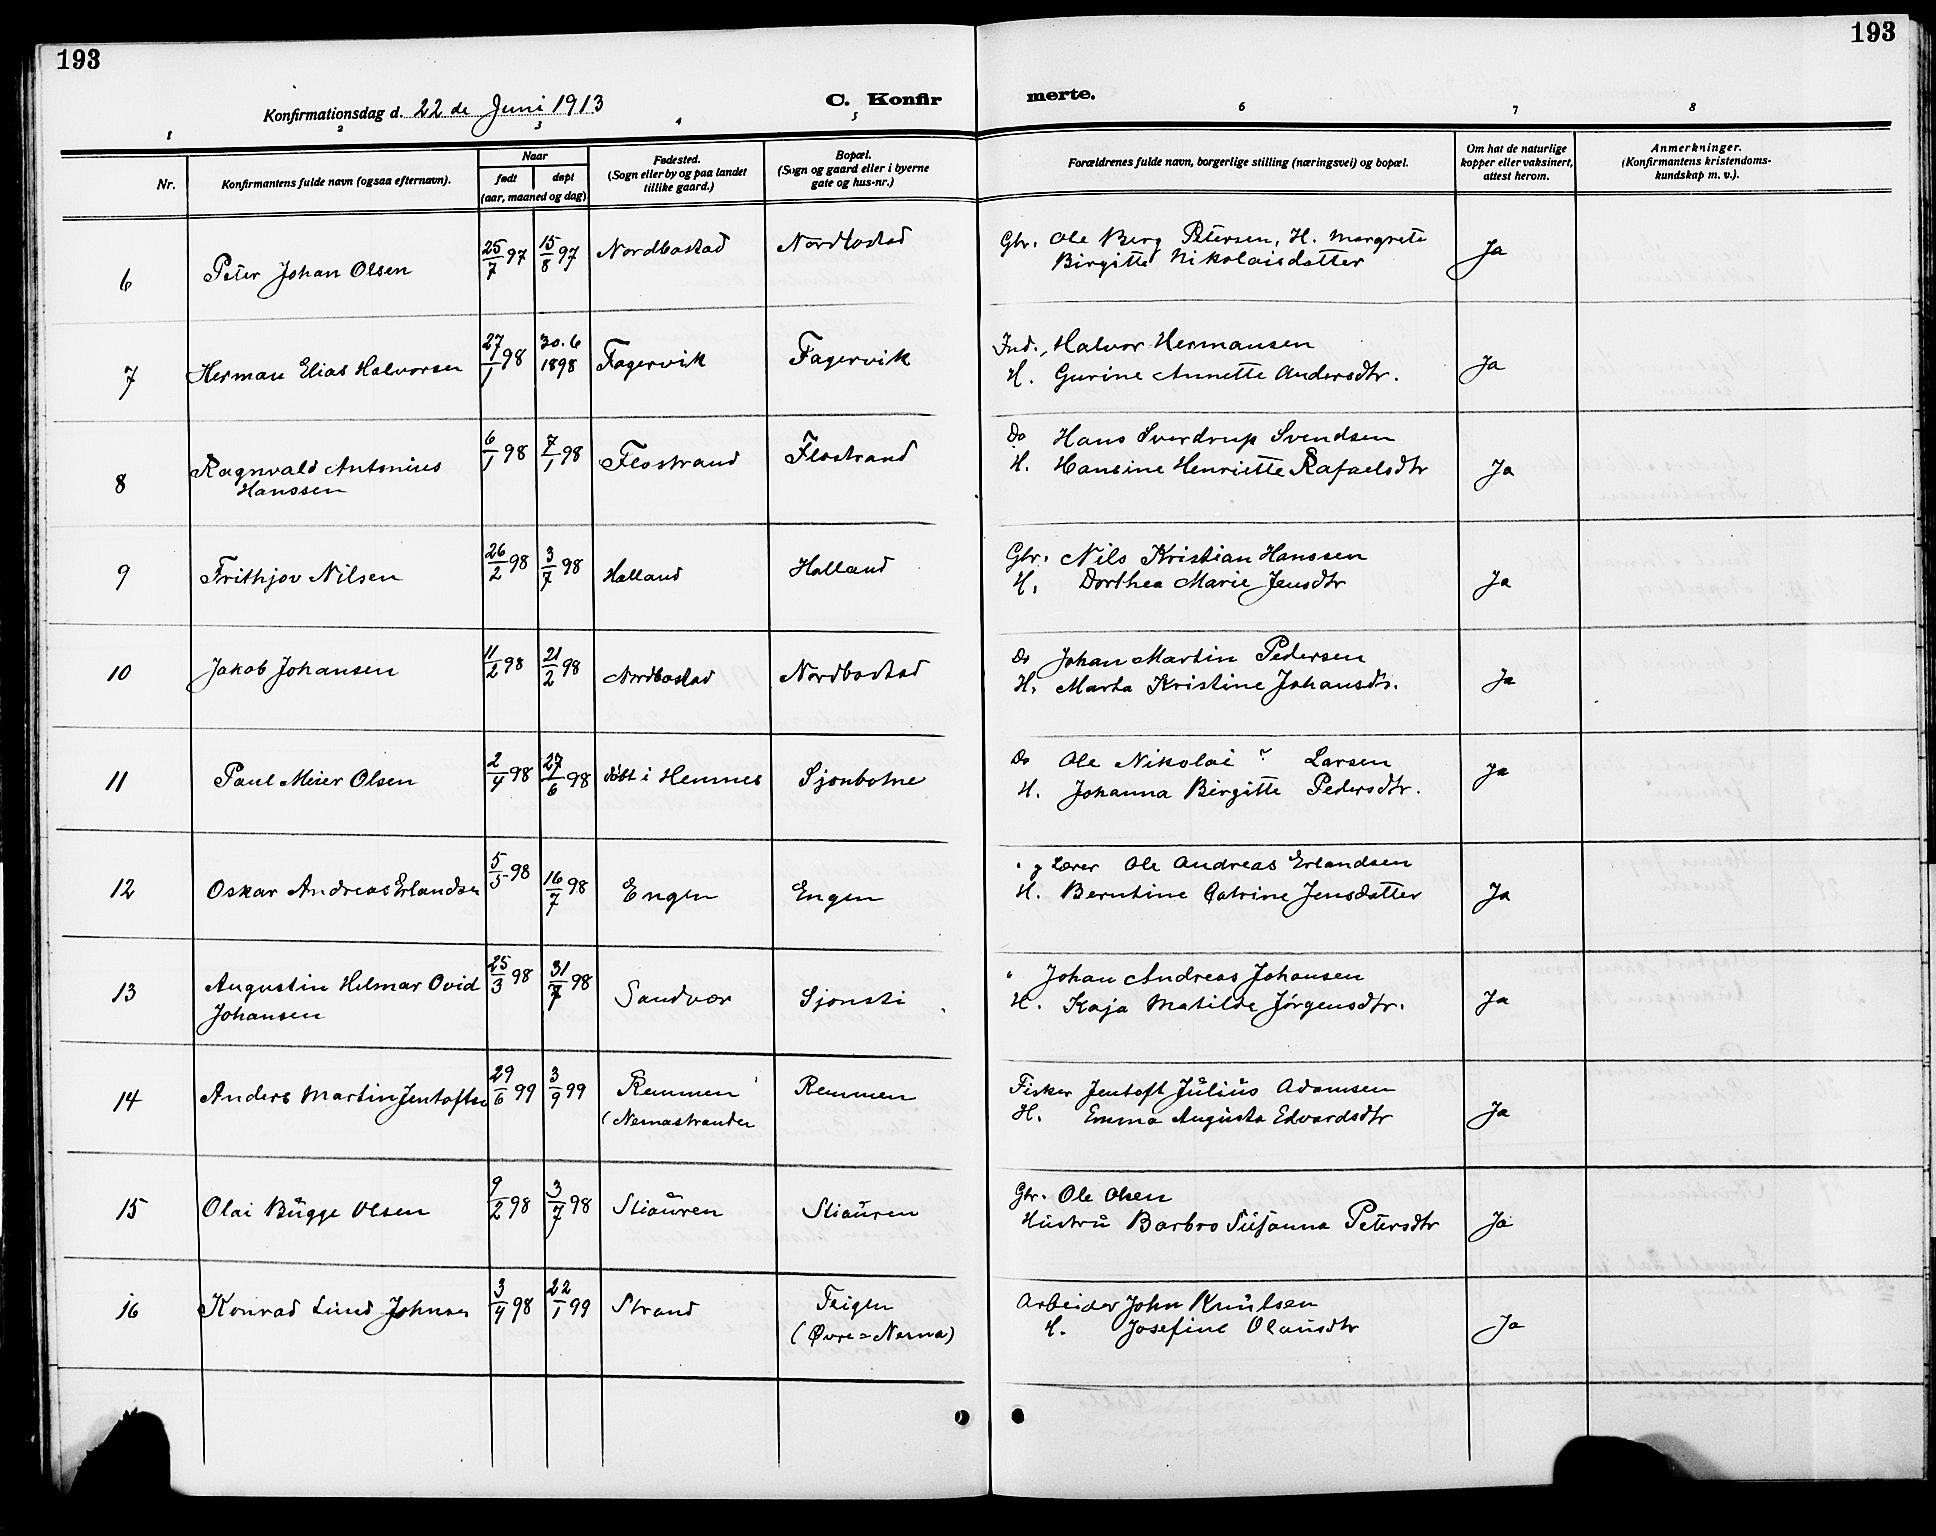 193
193
Konfirmationsdag d. 22 de Juni 1913
C. Konfir
merte.
1 2 3 4 5 6 7 8
Nr.
Konfirmantens fulde navn (ogsaa efternavn).
Naar
født
døpt
(aar, maaned og dag)
Fødested.
(Sogn eller by og paa landet
tillike gaard.)
Bopæl.
(Sogn og gaard eller i byerne
gate og hus-nr.)
Forældrenes fulde navn, borgerlige stilling (næringsvei) og bopæl.
Om hat de naturlige
kopper eller vaksinert,
attest herom.
Anmerkninger.
(Konfirmantens kristendoms-
kundskap m. v.).
6 Peter Johan Olsen 25/7 97 15/8 97 Nordbostad Nordbostad Gbr. Ole Berg Petersen, H. Margrete Ja
Birgitte Nikolaisdatter
7 Herman Elias Halvorsen 27/1 98 30.6 1898 Fagervik Fagervik Ind., Halvor Hermansen Ja
H. Gurine Annette Andersdtr.
8 Ragnvald Antonius 6/1 98 7/1 98 Flostrand Flostrand Do Hans Sverdrup Svendsen
Hanssen H. Hansine Henriette Rafaelsdtr Ja
9 Frithjov Nilsen 26/2 98 3/7 98 Halland Halland Gbr. Nils Kristian Hanssen
H. Dorthea Marie Jensdtr Ja
10 Jakob Johansen 11/2 98 21/2 98 Nordbostad Nordbostad Do Johan Martin Pedersen
H. Marta Kristine Johansdr. Ja
11 Paul Meier Olsen 2/4 98 27/6 98 født i Hemnes Sjonbotne Do Ole Nikolai ? Larsen Ja
H. Johanna Birgitte Pedersdtr.
12 Oskar Andreas Erlandsen 5/5 98 16/7 98 Engen Engen " g Lærer Ole Andreas Erlandsen
H. Berntine Catrine Jensdatter Ja
13 Augustin Hilmar Ovid 25/3 98 31/7 98 Sandvær Sjonsti " Johan Andreas Johansen
Johansen H. Kaja Matilde Jørgensdtr. Ja
14 Anders Martin Jentoftsen 29/6 99 3/9 99 Remmen Remmen Fisker Jentoft Julius Adamsen
(Nernastranden H. Emma Augusta Edvardsdtr Ja
15 Olai Bugge Olsen 9/2 98 3/7 98 Stiauren Stiauren Gbr. Ole Olsen
Hustru Barbro Susanna Petersdtr Ja
16 Konrad Lund Johnsen 3/4 98 22/1 99 Strand Teigen Arbeider John Knutsen
(Øvre=Nerna) H. Josefine Olausdtr Ja